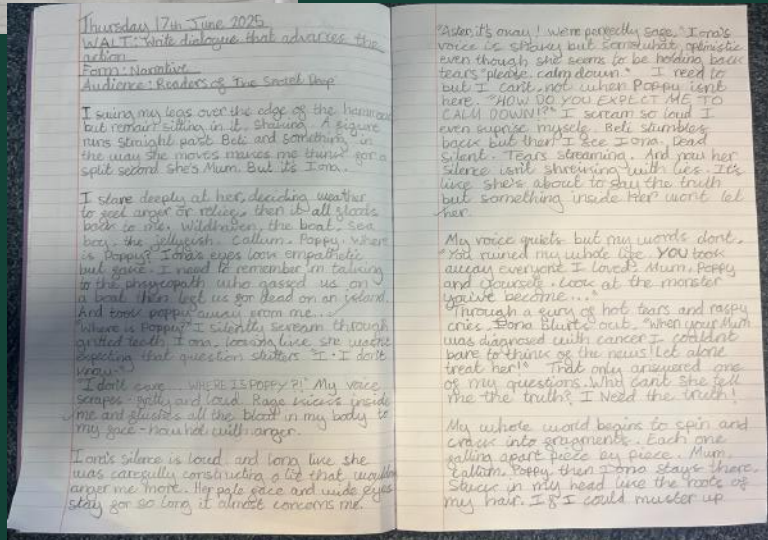 Thursday 17th June 2025
WALT: Write dialogue that advances the
action
Form: Narrative
Audience: Readers of The Secret Deep
I swing my legs over the edge of the hammock
but remain sitting in it, shaking. A figure
runs straight past Beti and something in
the way she moves makes me think for a
split second she's Mum. But it's Iona.
I stare deeply at her, deciding weather
to feel anger or relief, then it all floods
back to me. Wildhaven, the boat, sea
bay, the jellyfish. Callum. Poppy. Where
is Poppy? Iona's eyes look empathetic
but fake. I need to remember im talking
to the phsycopath who gassed us on
a boat then left us for dead on an island.
And took poppy away from me...
"Where is Poppy?" I silently scream through
gritted teeth Iona, looking like she wasn't
expecting that question stutters "I - I don't
know-"
"I don't care... WHERE IS POPPY?!" My voice
scrapes - gritty and loud. Rage kicks inside
me and flushes all the blood in my body to
my face - now hot with anger.
Iona's silence is loud, and long like she
was carefully constructing a lie that wouldn't
anger me more. Her pale face and wide eyes
stay for so long it almost concerns me.
"Aster, it's okay! We're perfectly safe." Iona's
voice is shakey but somewhat, optimistic
even though she seems to be holding back
tears "please, calm down." I need to
but I can't, not when Poppy isnt
here. "HOW DO YOU EXPECT ME TO
CALM DOWN!?" I scream so loud I
even suprise myself. Beti stumbles
back but then I see Iona. Dead
silent. Tears streaming. And now her
silence isn't shreiking with lies. It's
like she's about to say the truth
but something inside Her wont let
her.
My voice quiets but my words dont.
"You ruined my whole life. YOU took
away everyone I loved! Mum, Poppy
and yourself. Look at the monster
you've become..."
Through a fury of hot tears and raspy
cries, Iona blurts out, "When your Mum
was diagnosed with cancer I couldnt
bare to think of the news! Let alone
treat her!" That only answered one
of my questions. Why cant she tell
me the truth? I Need the truth!
My whole world begins to spin and
crack into fragments. Each one
falling apart piece by piece. Mum,
Callum, Poppy then Iona stays there.
Stuck in my head like the roots of
my hair. If I could muster up